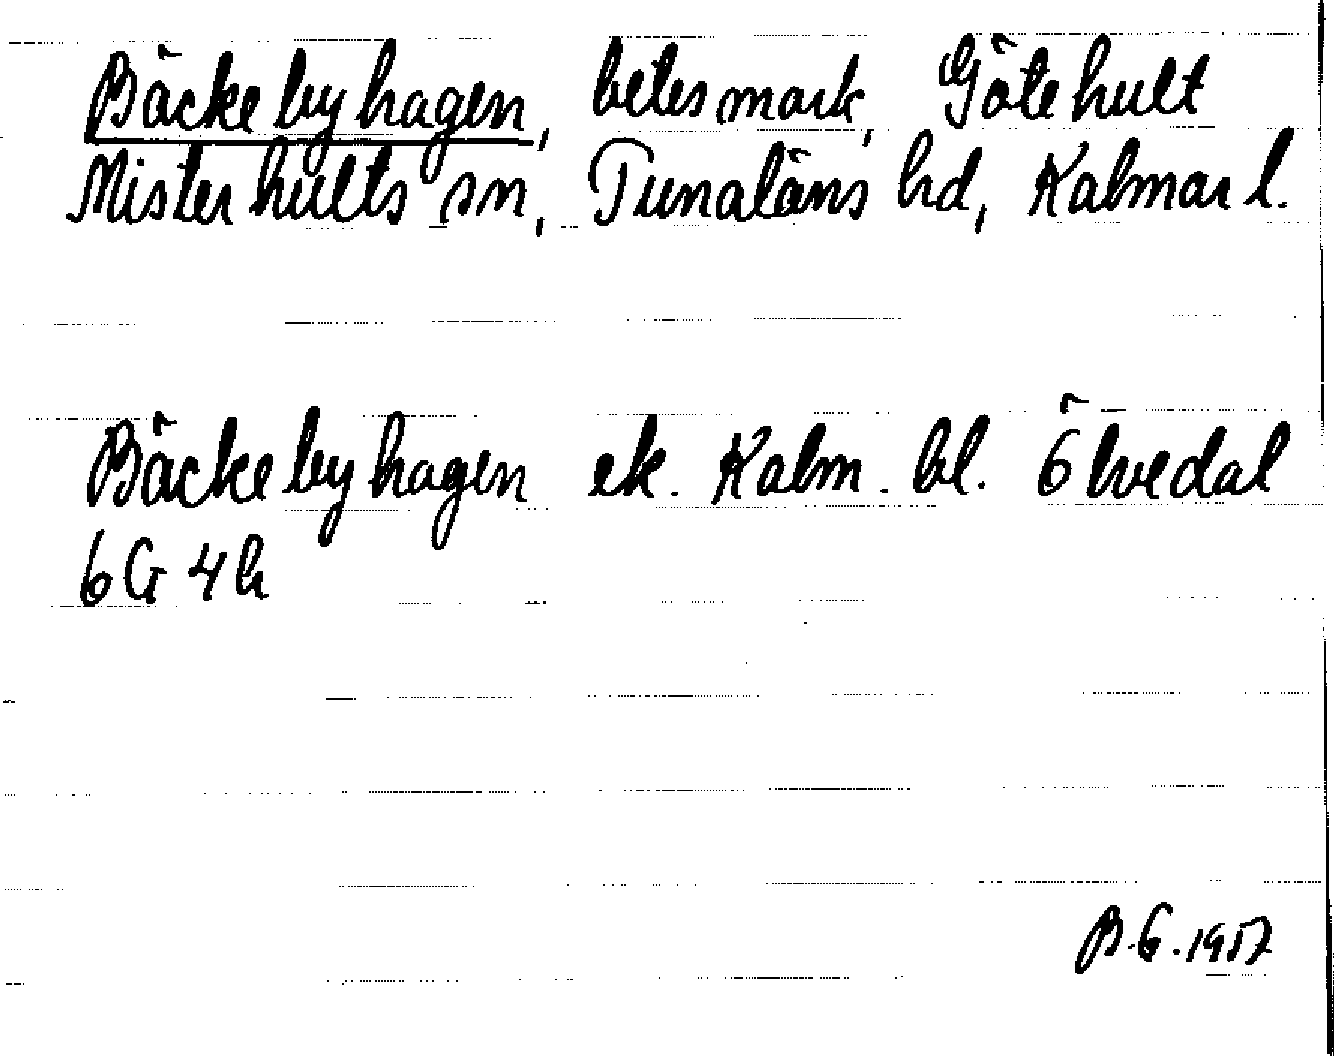 Bäckebyhagen, betesmark, Götehult
Misterhults sn, Tunaläns hd, Kalmar l.
Bäckebyhagen ek. Kalm. bl. Ölvedal
6G 4h
B.G. 1957